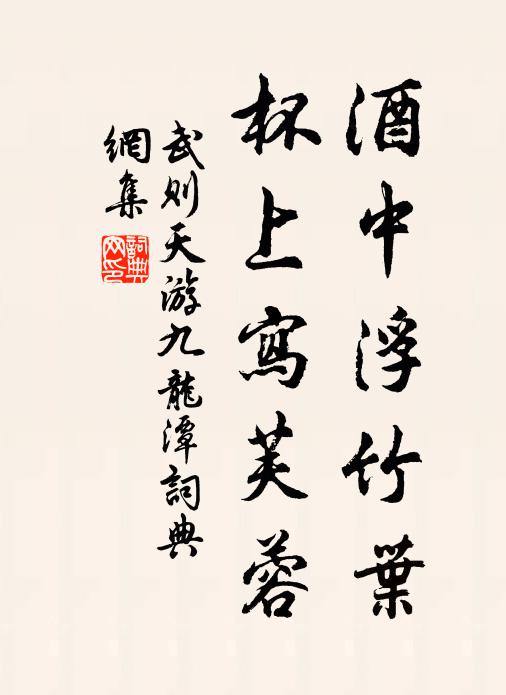 酒中浮竹葉
杯上寫芙蓉
武则天游九龍潭詞典
網集
詞典
网印